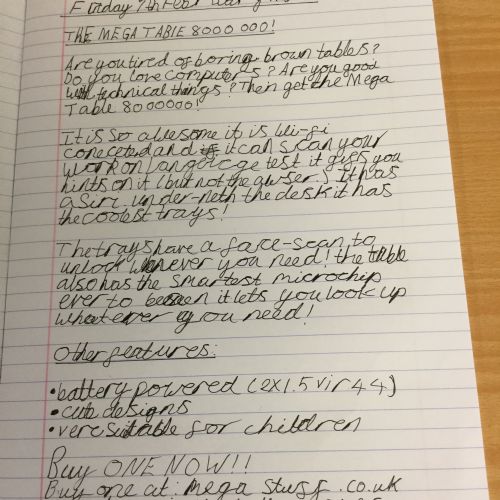 Friday 7th Feb
THE MEGA TABlE 8000 000!
Are you tired of boring brown tables?
Do you love computers? Are you good
with technical things? Then get the Mega
Table 8000000!
It is so awesome it is Wi-fi
coneceted and it can scan your
work on langaicge test it gives you
hints on it (but not the awser.) It has
a Siri. under-neth the desk it has
the coolest trays!
The trays have a face-scan to
unlock whenever you need! the table
also has the smartest microchip
ever to been it lets you look up
whatever you need!
Other features:
• battery powered (2x1.5v lr44)
• cute designs
• vere suitable for children
Buy ONE NOW!!
Buy one at: mega stuff.co.uk